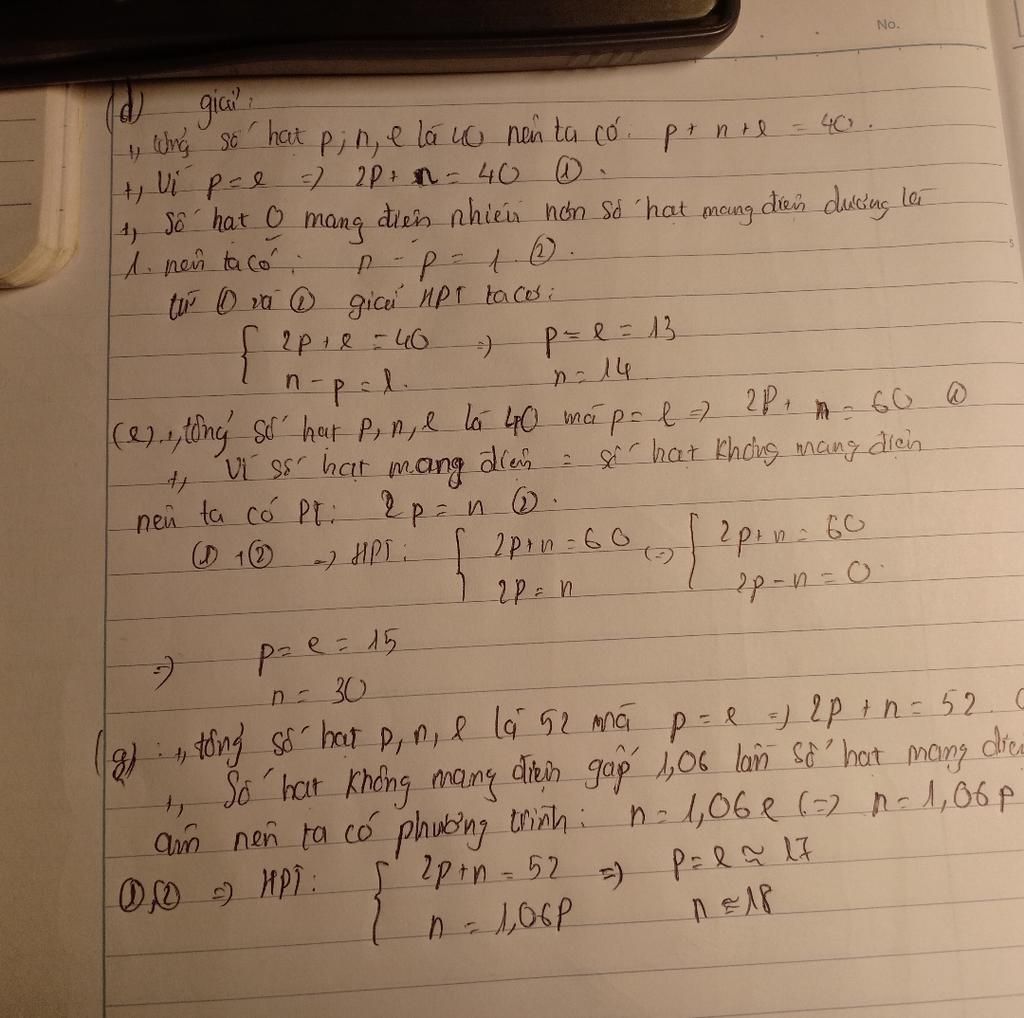 No.
(d) giải:
+, tổng số hạt p; n, e là 40 nên ta có: p + n + e = 40.
+, Vì p = e => 2p + n = 40 ①.
+, Số hạt 0 mang điện nhiều hơn số hạt mang điện dương là
1. nên ta có: n - p = 1. ②.
từ ① và ② giải HPT ta có:
{ 2p + e = 40 => p = e = 13
n - p = 1. n = 14
(e) +, tổng số hạt p, n, e là 40 mà p = e => 2p + n = 60 ①
+, Vì số hạt mang điện = số hạt không mang điện
nên ta có PT: 2p = n ②.
① + ② => HPT: { 2p + n = 60 <=> { 2p + n = 60
2p = n 2p - n = 0.
=> p = e = 15
n = 30
(g): +, tổng số hạt p, n, e là 52 mà p = e => 2p + n = 52.
+, Số hạt không mang điện gấp 1,06 lần số hạt mang điện
âm nên ta có phương trình: n = 1,06e <=> n = 1,06p
①, ② => HPT: { 2p + n = 52 => p = e ≈ 17
n = 1,06p n ≈ 18